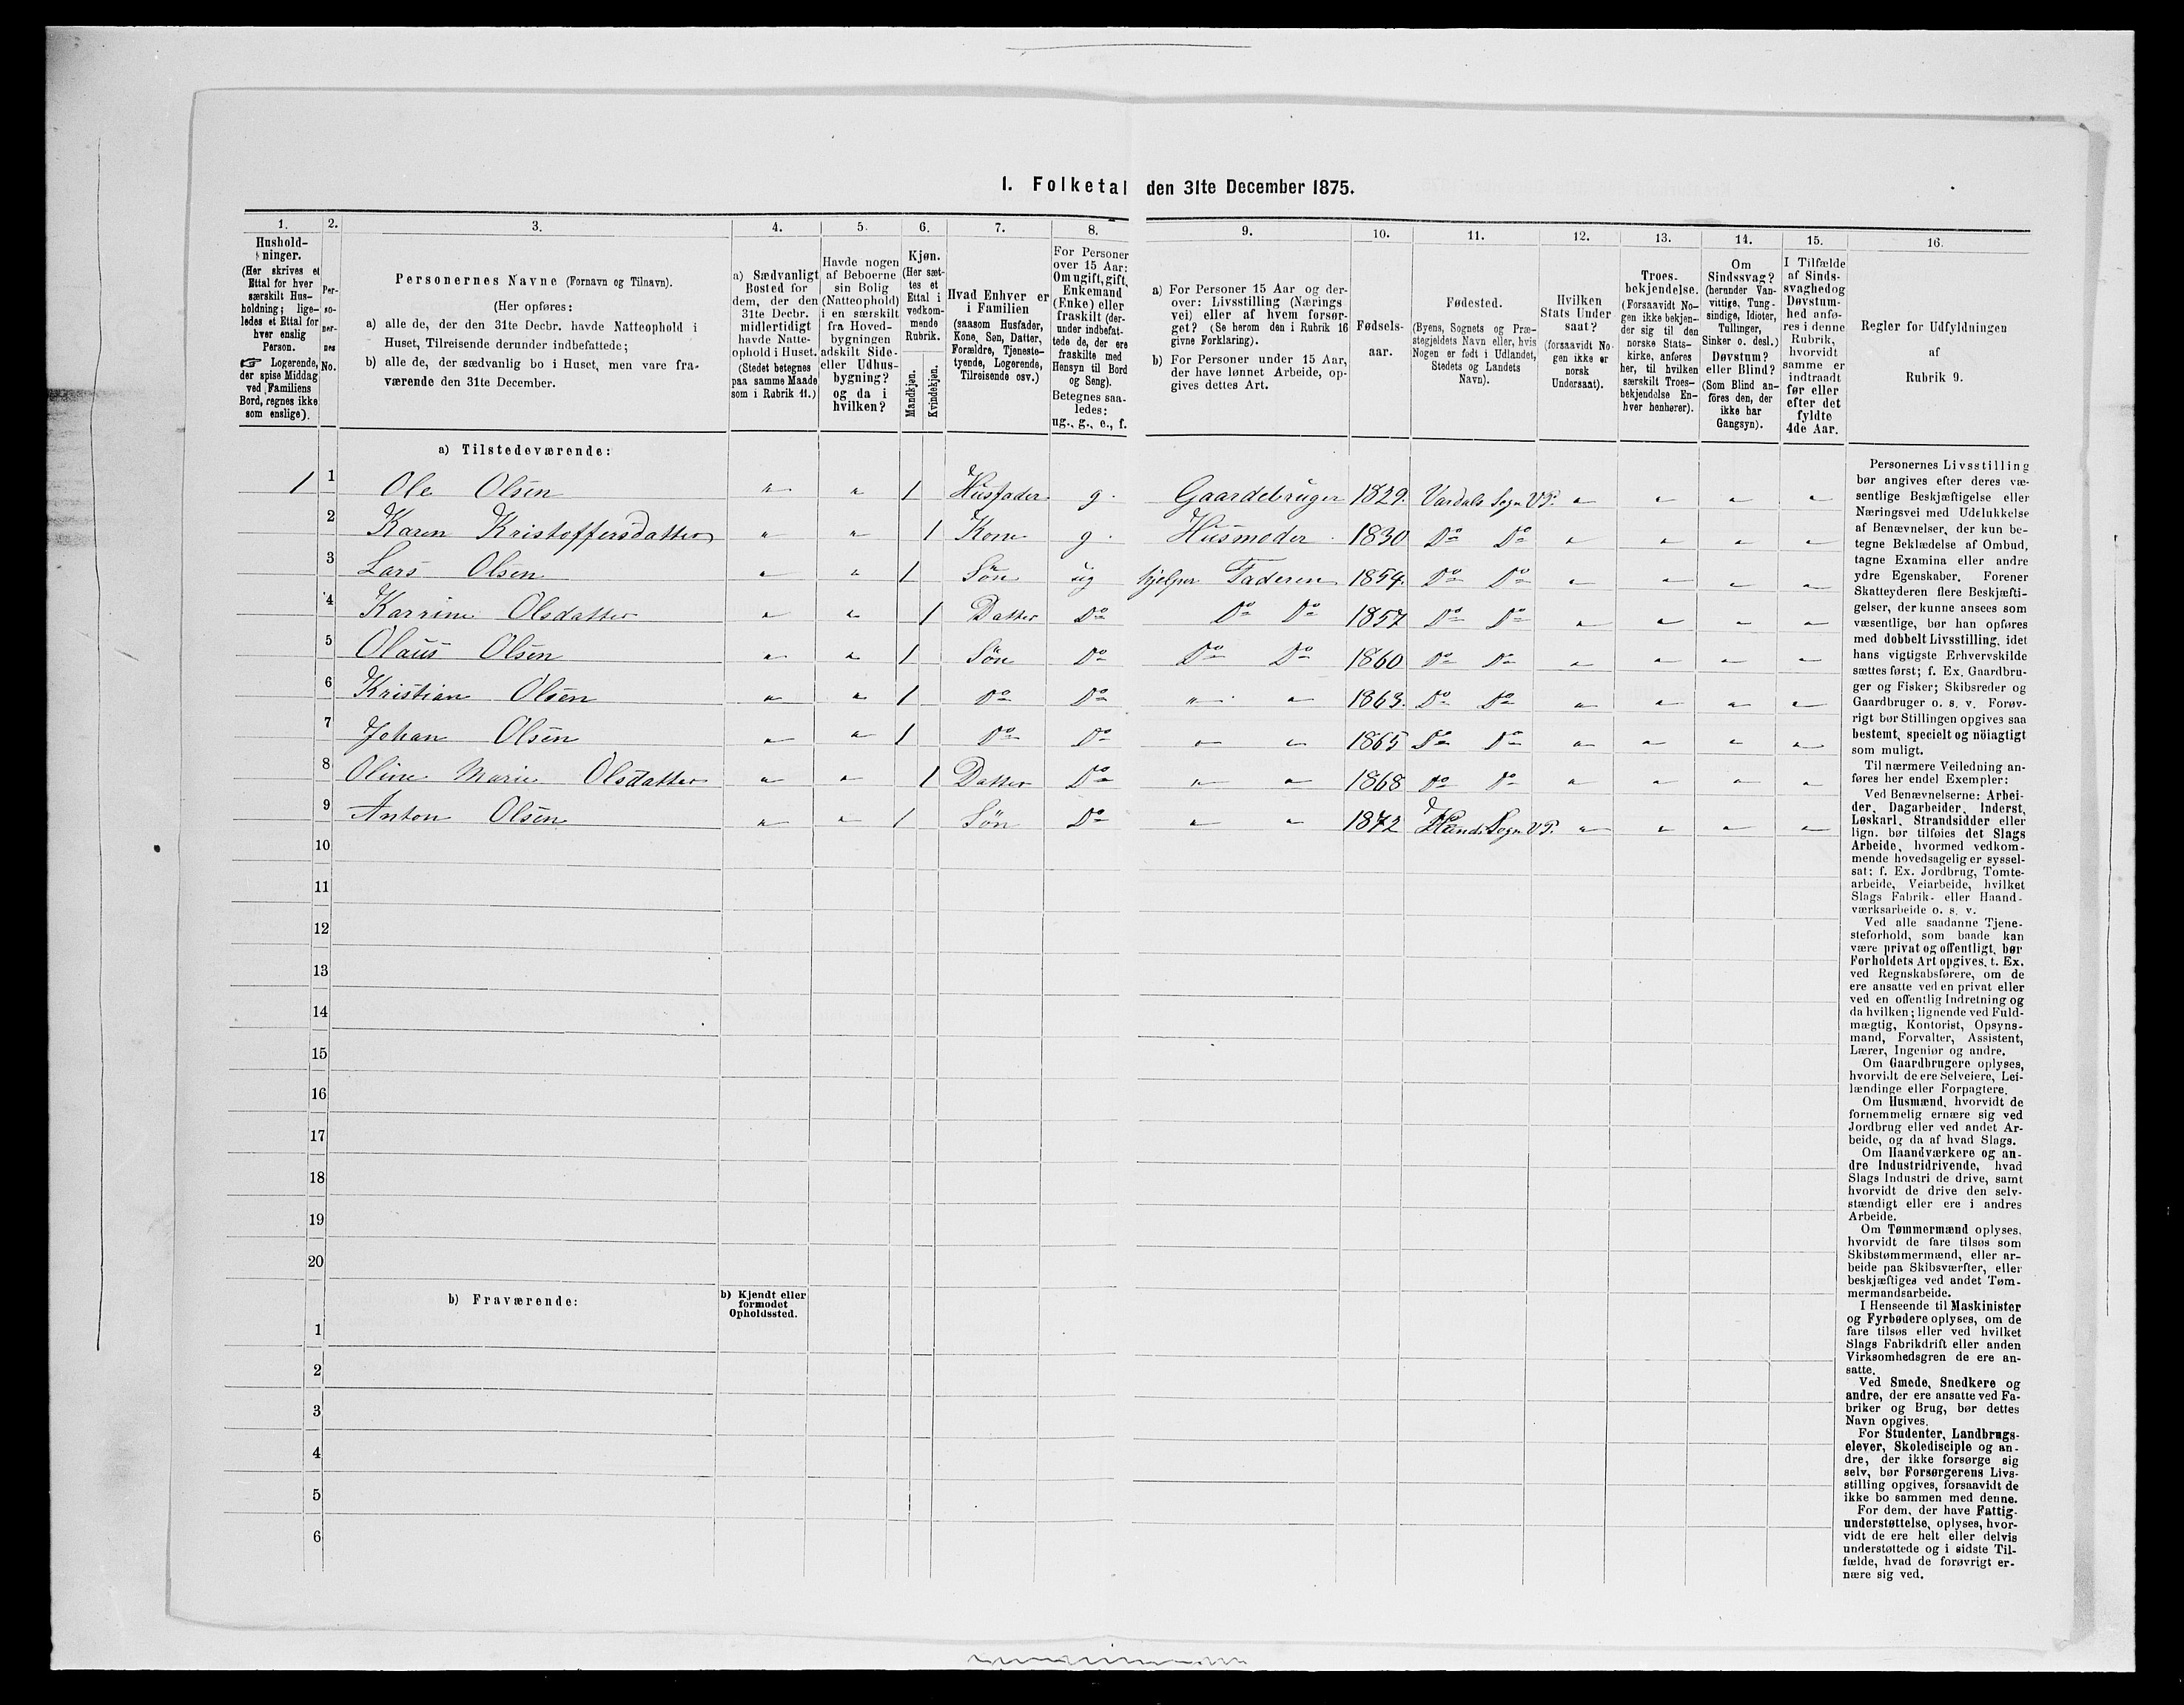 1. Folketal den 31te December 1875.
1. 2. 3. 4. 5. 6. 7. 8. 9. 10. 11. 12. 13. 14. 15. 16.
Hushold-
ninger.
(Her skrives et
Ettal for hver
særskilt Hus-
holdning; lige-
ledes et Ettal for
hver enslig
Person.
☞ Logerende,
der spise Middag
ved Familiens
Bord, regnes ikke
som enslige).
Per-
so-
ner-
nes
No.
Personernes Navne (Fornavn og Tilnavn).
(Her opføres:
a) alle de, der den 31te Decbr. havde Natteophold i
Huset, Tilreisende derunder indbefattede;
b) alle de, der sædvanlig bo i Huset, men vare fra-
værende den 31te December.
a) Sædvanligt
Bosted for
dem, der den
31te Decbr.
midlertidigt
havde Natte-
ophold i Huset.
(Stedet betegnes
paa samme Maade
som i Rubrik 11.)
Havde nogen
af Beboerne
sin Bolig
(Natteophold)
i en særskilt
fra Hoved-
bygningen
adskilt Side-
eller Udhus-
bygning?
og da i
hvilken?
Kjøn.
(Her sæt-
tes et
Ettal i
vedkom-
mende
Rubrik.
Mandkjøn.
Kvindekjøn.
Hvad Enhver er
i Familien
(saasom Husfader,
Kone, Søn, Datter,
Forældre, Tjeneste-
tyende, Logerende,
Tilreisende osv.)
For Personer
over 15 Aar:
Om ugift, gift,
Enkemand
(Enke) eller
fraskilt (der-
under indbefat-
tede de, der ere
fraskilte med
Hensyn til Bord
og Seng).
Betegnes saa-
ledes:
ug., g., e., f.
a) For Personer 15 Aar og der-
over: Livsstilling (Nærings
vei) eller af hvem forsør-
get? (Se herom den i Rubrik 16
givne Forklaring).
b) For Personer under 15 Aar,
der have lønnet Arbeide, op-
gives dettes Art.
Fødsels-
aar.
Fødested.
(Byens, Sognets og Præ-
stegjeldets Navn eller, hvis
Nogen er født i Udlandet,
Stedets og Landets
Navn).
Hvilken
Stats Under
saat?
(forsaavidt No-
gen ikke er
norsk
Undersaat).
Troes-
bekjendelse.
(Forsaavidt No-
gen ikke bekjen-
der sig til den
norske Stats-
kirke, anføres
her, til hvilken
særskilt Troes-
bekjendelse En-
hver henhører).
Om
Sindssvag?
(herunder Van-
vittige, Tung-
sindige, Idioter,
Tullinger,
Sinker o. desl.)
Døvstum?
eller Blind?
(Som Blind an-
föres den, der
ikke har
Gangsyn).
I Tilfælde
af Sinds-
svaghedog
Døvstum-
hed anfø-
res i denne
Rubrik,
hvorvidt
samme er
indtraadt
før eller
efter det
fyldte
4de Aar.
Regler for Udfyldningen
af
Rubrik 9.
a) Tilstedeværende:
1 1 Ole Olsen " " 1 Husfader g. Gaardebruger 1829. Vardals Sogn V. P. " " " "
2 Karen Kristoffersdatter " " 1 Kone g. Husmoder 1830 Do Do " " " "
3 Lars Olsen " " 1 Søn ug hjelper Faderen 1854. Do Do " " " "
4 Karrine Olsdatter " " 1 Datter Do Do Do 1857 Do Do " " " "
5 Olaus Olsen " " 1 Søn Do Do Do 1860 Do Do " " " "
6 Kristian Olsen " " 1 Do Do " " 1863. Do Do " " " "
7 Johan Olsen " " 1 Do Do " " 1865 Do Do " " " "
8 Oline Marie Olsdatter " " 1 Datter Do " " 1868 Do Do " " " "
9 Anton Olsen " " 1 Søn Do " " 1872 Sogn V. P. " " " "
10
11
12
13
14
15
16
17
18
19
20
b) Fraværende:
b) Kjendt eller
formodet
Opholdssted.
1
2
3
4
5
6
Personernes Livsstilling
bør angives efter deres væ-
sentlige Beskjæftigelse eller
Næringsvei med Udelukkelse
af Benævnelser, der kun be-
tegne Beklædelse af Ombud,
tagne Examina eller andre
ydre Egenskaber. Forener
Skatteyderen flere Beskjæfti-
gelser, der kunne ansees som
væsentlige, bør han opføres
med dobbelt Livsstilling, idet
hans vigtigste Erhvervskilde
sættes først; f. Ex. Gaardbru-
ger og Fisker; Skibsreder og
Gaardbruger o. s. v. Forøv-
rigt bør Stillingen opgives saa
bestemt, specielt og nöiagtigt
som muligt.
Til nærmere Veiledning an-
føres her endel Exempler:
Ved Benævnelserne: Arbei-
der, Dagarbeider, Inderst,
Løskarl, Strandsidder eller
lign. bør tilføies det Slags
Arbeide, hvormed vedkom-
mende hovedsagelig er syssel-
sat; f. Ex. Jordbrug, Tomte-
arbeide, Veiarbeide, hvilket
Slags Fabrik- eller Haand-
værksarbeide o. s. v.
Ved alle saadanne Tjene-
steforhold, som baade kan
være privat og offentligt, bør
Forholdets Art opgives, t. Ex.
ved Regnskabsførere, om de
ere ansatte ved en privat eller
ved en offentlig Indretning og
da hvilken; lignende ved Fuld-
mægtig, Kontorist, Opsyns-
mand, Forvalter, Assistent,
Lærer, Ingeniør og andre.
Om Gaardbrugere oplyses,
hvorvidt de ere Selveiere, Lei-
lændinge eller Forpagtere.
Om Husmænd, hvorvidt de
fornemmelig ernære sig ved
Jordbrug eller ved andet Ar-
beide, og da af hvad Slags.
Om Haandværkere og an-
dre Industridrivende, hvad
Slags Industri de drive, samt
hvorvidt de drive den selv-
stændigt eller ere i andres
Arbeide.
Om Tømmermænd oplyses,
hvorvidt de fare tilsøs som
Skibstømmermænd, eller ar-
beide paa Skibsværfter, eller
beskjæftiges ved andet Tøm-
mermandsarbeide.
I Henseende til Maskinister
og Fyrbødere oplyses, om de
fare tilsøs eller ved hvilket
Slags Fabrikdrift eller anden
Virksomhedsgren de ere an-
satte.
Ved Smede, Snedkere og
andre, der ere ansatte ved Fa-
briker og Brug, bør dettes
Navn opgives.
For Studenter, Landbrugs-
elever, Skoledisciple og an-
dre, der ikke forsørge sig
selv, bør Forsørgerens Livs-
stilling opgives, forsaavidt de
ikke bo sammen med denne.
For dem, der have Fattig-
understøttelse, oplyses, hvor-
vidt de ere helt eller delvis
understøttede og i sidste Til-
fælde, hvad de forøvrigt er-
nære sig ved.